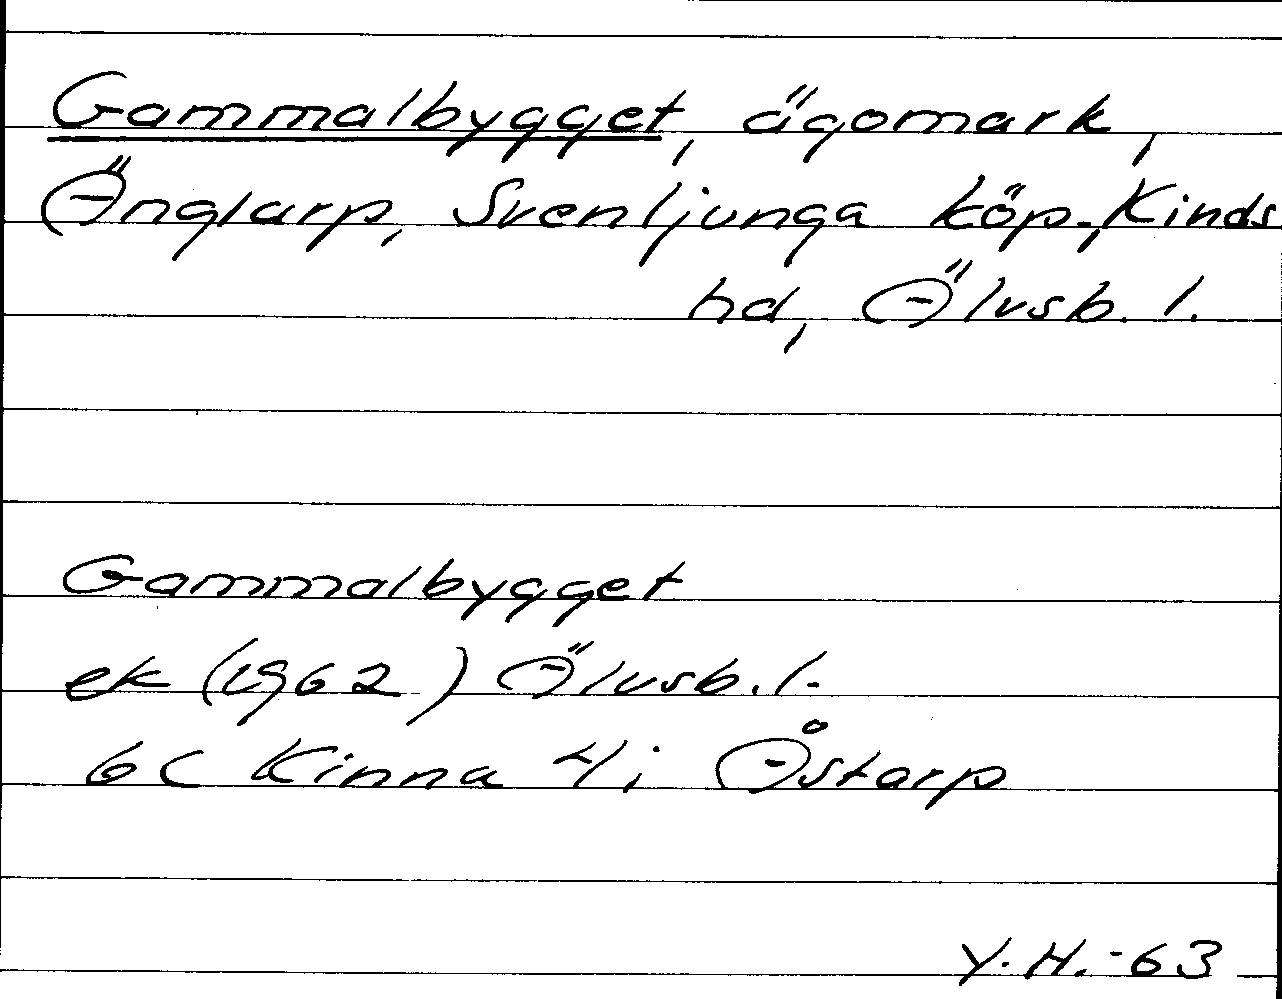 Gammalbygget, ägomark,
Änglarp, Svenljunga köp., Kinds
hd, Älvsb. l.
Gammalbygget
ek (1962) Älvsb. l.
6C Kinna 4i Åstarp
Y. H. -63